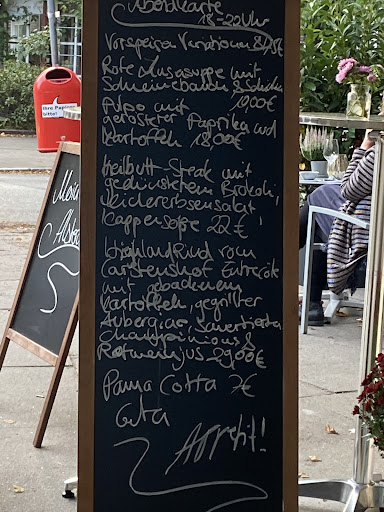 Abendkarte
18-20 Uhr
Vorspeisen Variationen
Rote Linsensuppe mit
Schweinebauch &
10,00€
Pulpo mit
gerösteter Paprika und
Kartoffeln 18,00€
Heilbutt-Steak mit
gedünstetem Brokoli,
Kichererbsensalat
Kappersoße 22€
Highland Rind vom
Carstenshof Entrecôte
mit gebackenen
Kartoffeln, gegrillter
Aubergine, sautierten
Champignions &
Rotweinjus 29,00€
Panna Cotta 7€
Guten
Appetit!
Ihre Papiere
bitte!